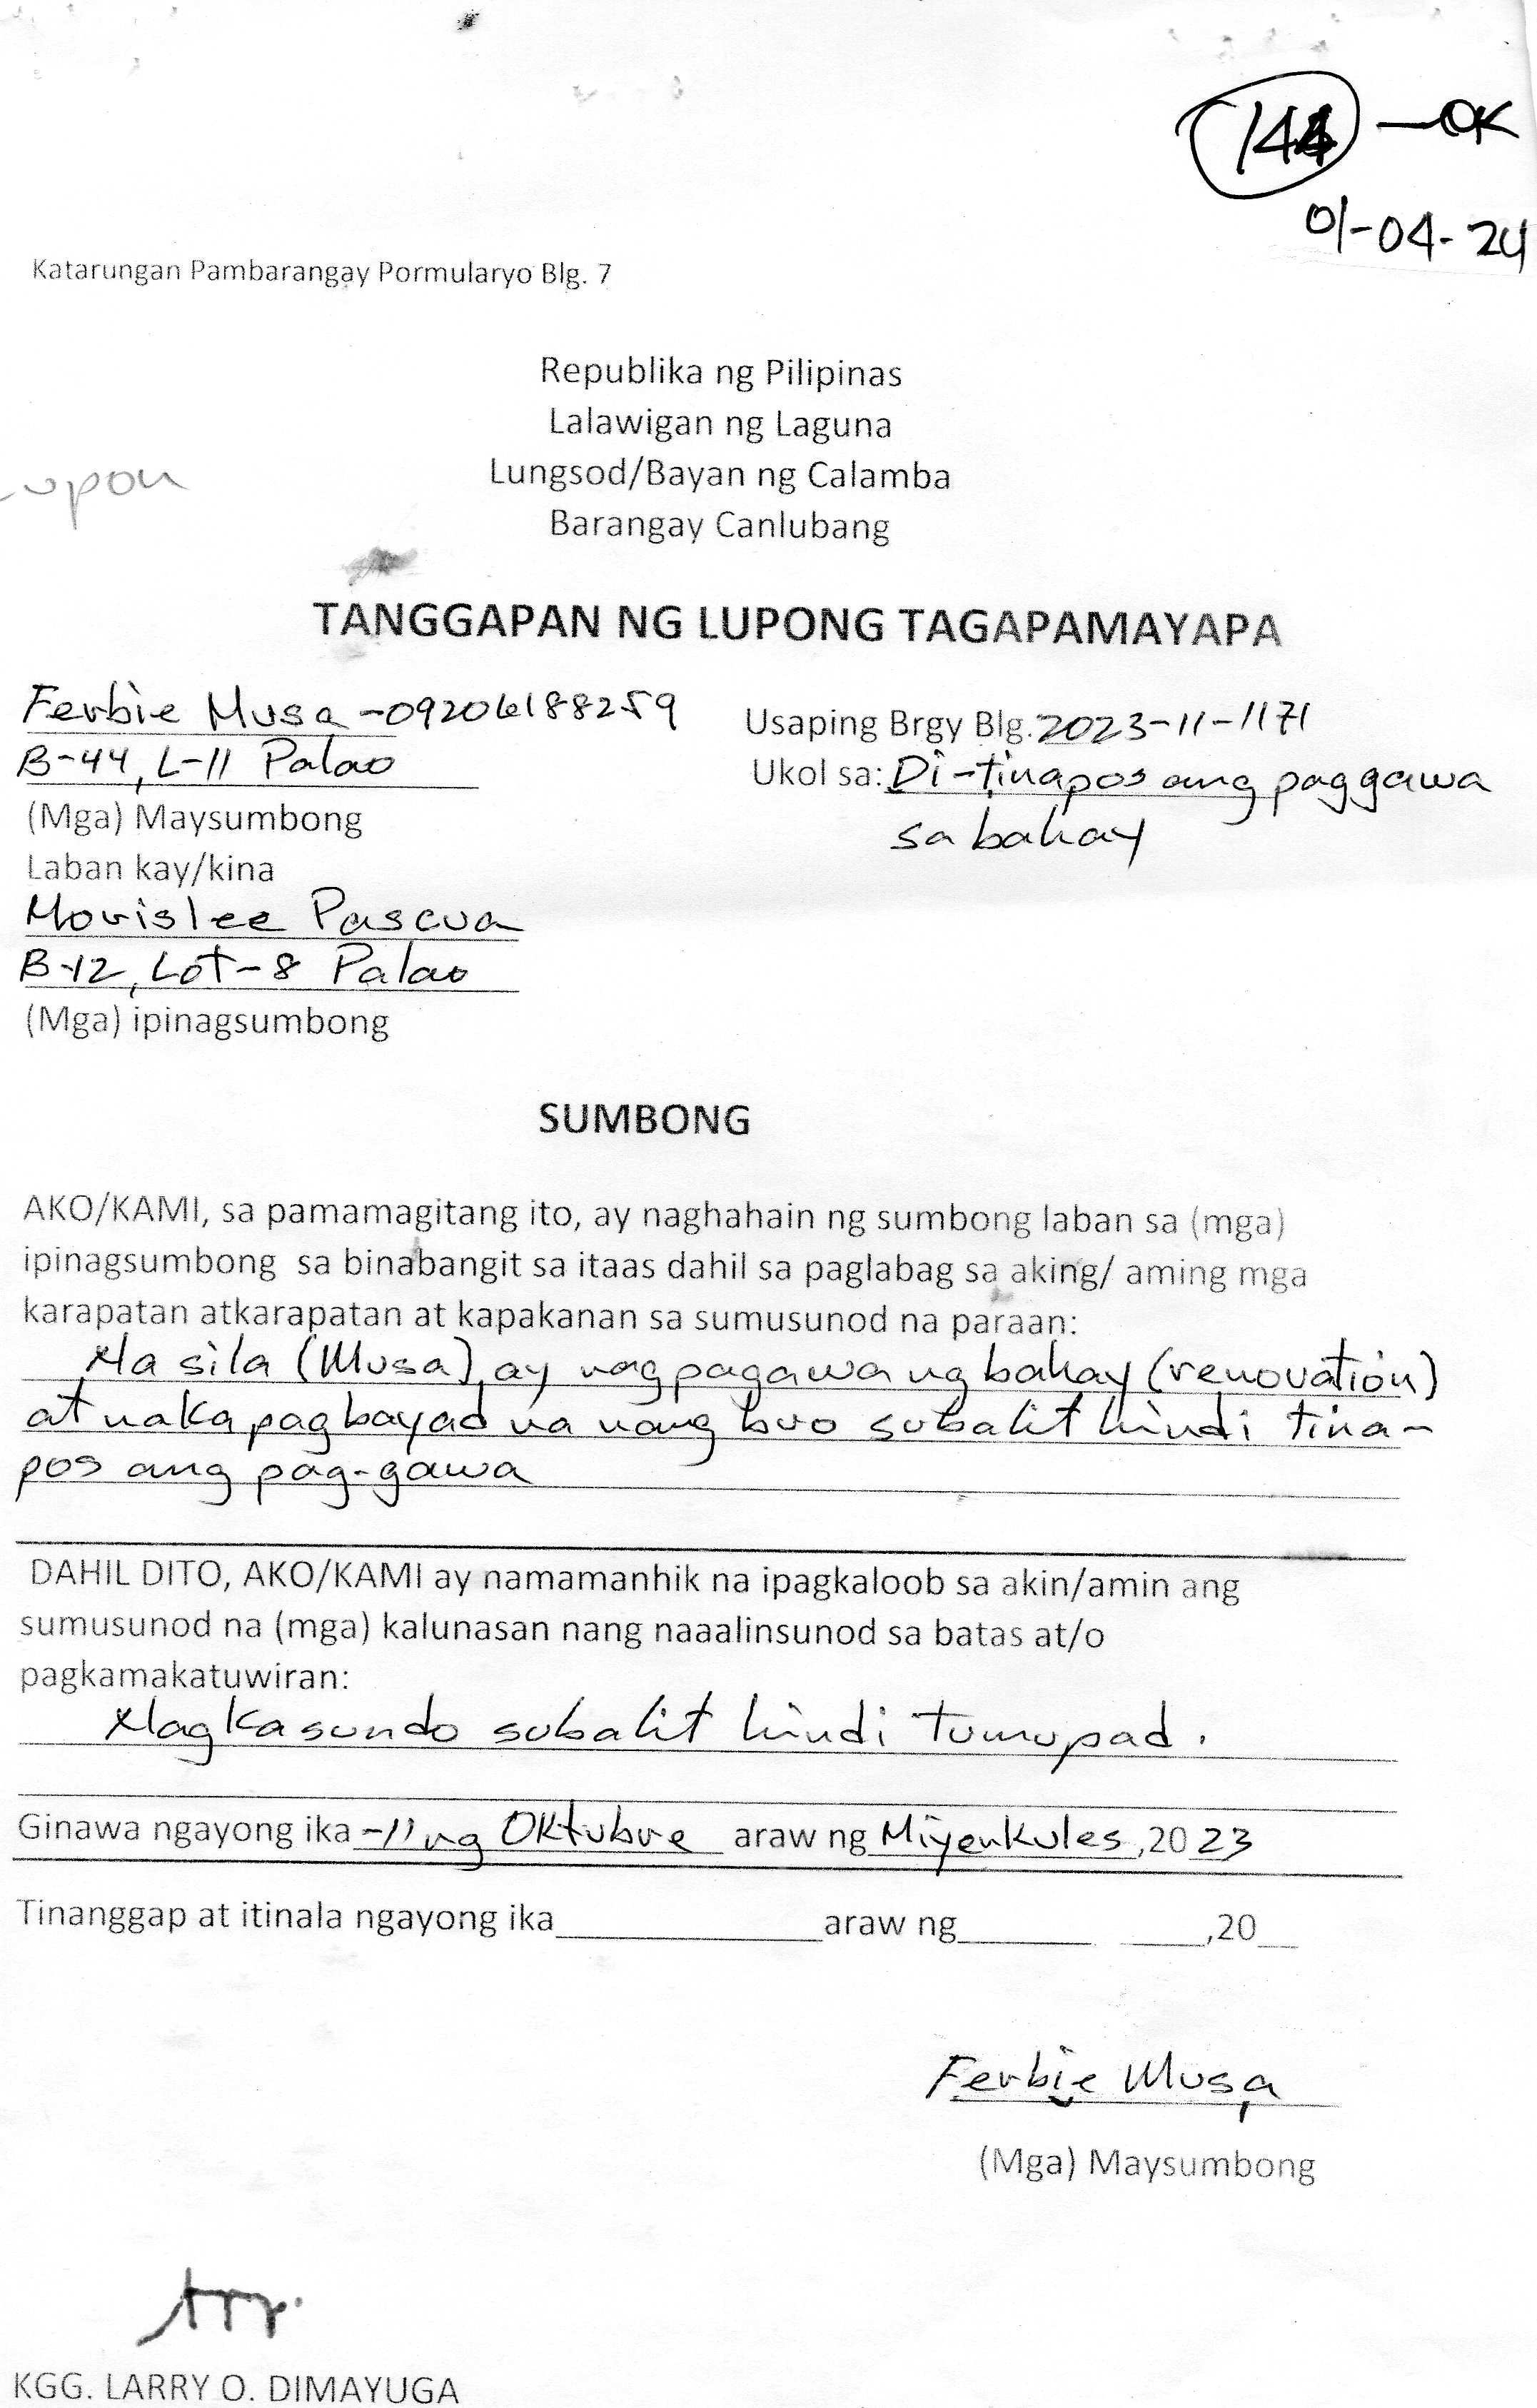 144 - OK
01-04-24
Katarungan Pambarangay Pormularyo Blg. 7
Republika ng Pilipinas
Lalawigan ng Laguna
Lungsod/Bayan ng Calamba
Barangay Canlubang
upon
TANGGAPAN NG LUPONG TAGAPAMAYAPA
Ferbie Musa - 09206188259
B-44, L-11 Palao
(Mga) Maysumbong
Laban kay/kina
Morislee Pascua
B-12, Lot-8 Palao
(Mga) ipinagsumbong
Usaping Brgy Blg. 2023-11-1171
Ukol sa: Di-tinapos ang paggawa
sa bahay
SUMBONG
AKO/KAMI, sa pamamagitang ito, ay naghahain ng sumbong laban sa (mga)
ipinagsumbong sa binabangit sa itaas dahil sa paglabag sa aking/ aming mga
karapatan atkarapatan at kapakanan sa sumusunod na paraan:
Na sila (Musa) ay nagpagawa ng bahay (renovation)
at nakapagbayad na nang buo subalit hindi tina-
pos ang pag-gawa
DAHIL DITO, AKO/KAMI ay namamanhik na ipagkaloob sa akin/amin ang
sumusunod na (mga) kalunasan nang naaalinsunod sa batas at/o
pagkamakatuwiran:
Nagkasundo subalit hindi tumupad.
Ginawa ngayong ika -11 ng Oktubre araw ng Miyerkules, 20 23
Tinanggap at itinala ngayong ika______________araw ng_______ ____,20__
Ferbie Musa
(Mga) Maysumbong
KGG. LARRY O. DIMAYUGA